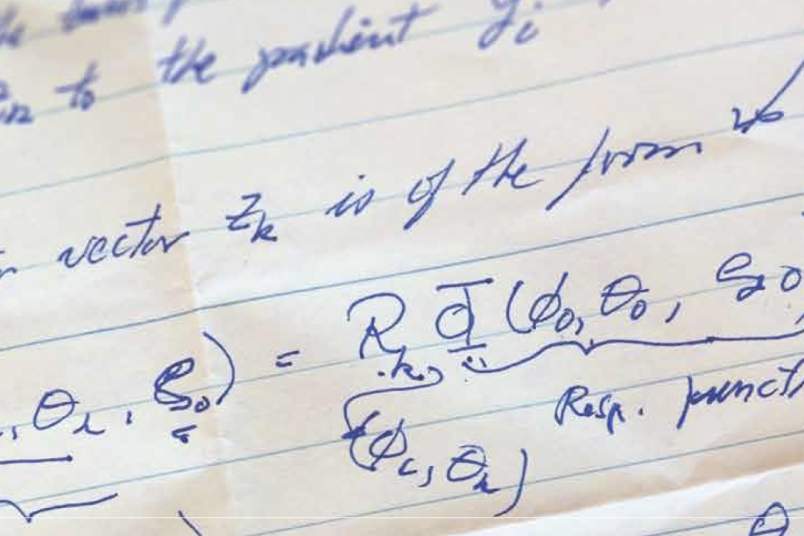 to the gradient g_i
vector z_k is of the form
, θ_k, ξ_0) = R_k Φ(φ_0, θ_0, ξ_0
(φ_k, θ_k) Resp. funct
θ